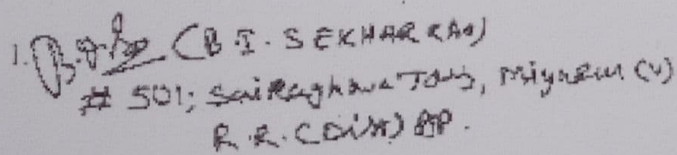 1. (B.I. SEKHAR RAO)
# 501; Sai Raghava Towers, Miyapur (V)
R.R. (Dist) AP.